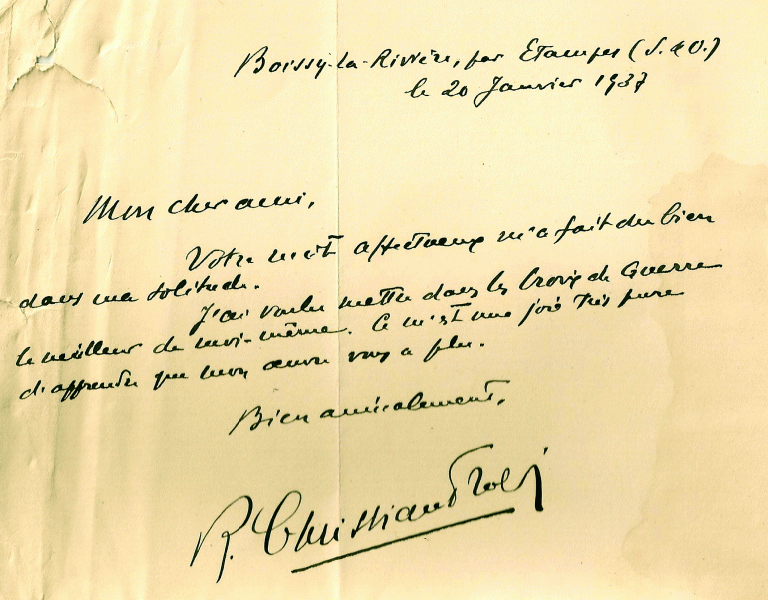 Boissy-la-Rivière, par Etampes (S. & O.)
le 20 Janvier 1937
Mon cher ami,
Votre mot affectueux m'a fait du bien
dans ma solitude.
J'ai voulu mettre dans les Croix de Guerre
le meilleur de moi-même. Ce m'est une joie très pure
d'apprendre que mon œuvre vous a plu.
Bien amicalement,
R. Christian-Frogé